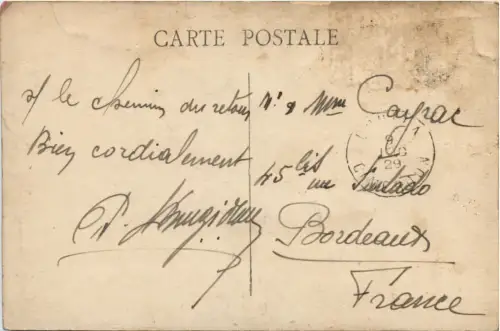 CARTE POSTALE
s/ le chemin du retour
Bien cordialement
Mr & Mme Cayrac
45 bis
rue
Bordeaux
France